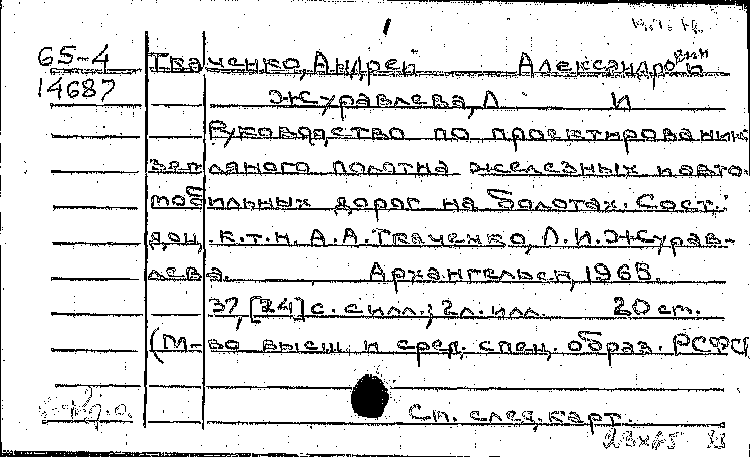 65-4 Ткаченко, Андрей Александрович
14687 Журавлева, Л И
Руководство по проектированию
земляного полотна железных и авто-
мобильных дорог на болотах. Сост.:
доц. к.т.н. А.А. Ткаченко, Л.И. Журав-
лева. Архангельск, 1965.
37, [24] с. с илл.; 2 л. илл. 20 см.
(М-во высш. и сред. спец. образ. РСФСР
См. след. карт.